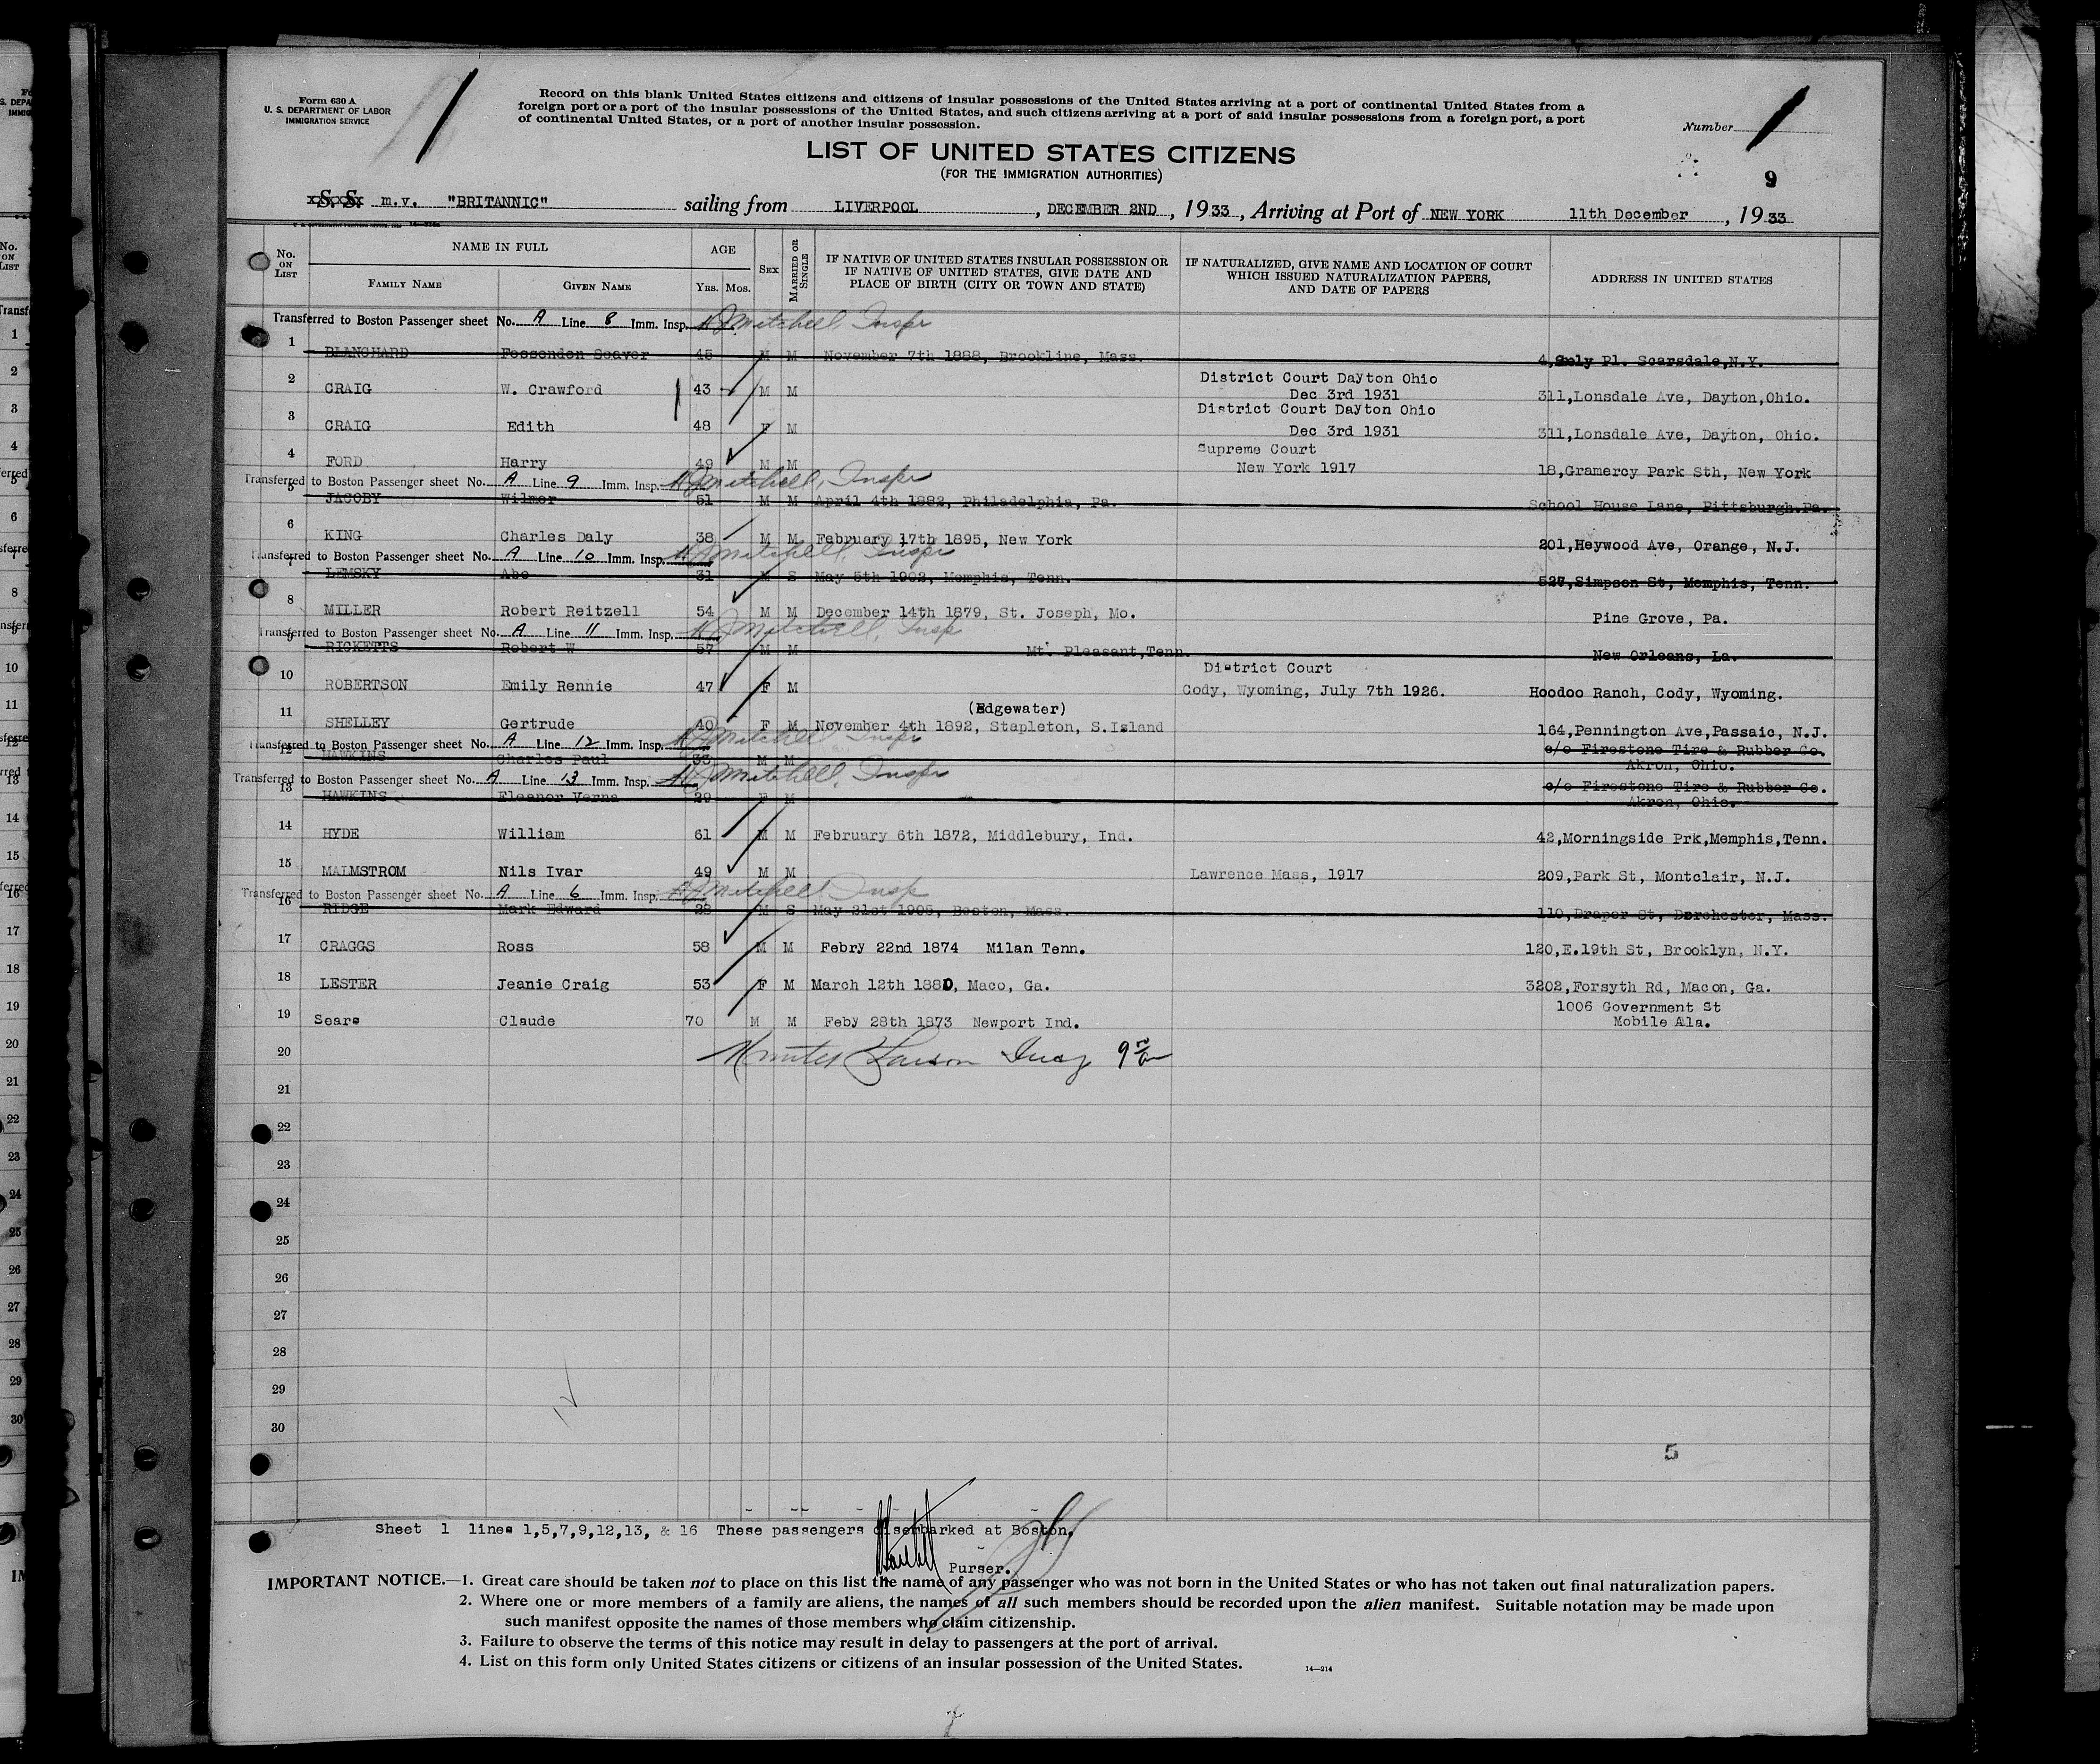 Form 630 A
U. S. DEPARTMENT OF LABOR
IMMIGRATION SERVICE
Record on this blank United States citizens and citizens of insular possessions of the United States arriving at a port of continental United States from a
foreign port or a port of the insular possessions of the United States, and such citizens arriving at a port of said insular possessions from a foreign port, a port
of continental United States, or a port of another insular possession.
Number 1
LIST OF UNITED STATES CITIZENS
(FOR THE IMMIGRATION AUTHORITIES)
9
S. S. m.v. "BRITANNIC" sailing from LIVERPOOL, DECEMBER 2ND, 1933, Arriving at Port of NEW YORK 11th December, 1933
No. ON LIST NAME IN FULL FAMILY NAME GIVEN NAME AGE Yrs. Mos. SEX MARRIED OR SINGLE IF NATIVE OF UNITED STATES INSULAR POSSESSION OR IF NATIVE OF UNITED STATES, GIVE DATE AND PLACE OF BIRTH (CITY OR TOWN AND STATE) IF NATURALIZED, GIVE NAME AND LOCATION OF COURT WHICH ISSUED NATURALIZATION PAPERS, AND DATE OF PAPERS ADDRESS IN UNITED STATES
Transferred to Boston Passenger sheet No. A Line 8 Imm. Insp. Mitchell, Inspr
1 BLANCHARD Fessenden Seaver 45 M M November 7th 1888, Brookline, Mass. 4, Pl. Scarsdale,N.Y.
2 CRAIG W. Crawford 43 M M District Court Dayton Ohio Dec 3rd 1931 311,Lonsdale Ave, Dayton,Ohio.
3 CRAIG Edith 48 F M District Court Dayton Ohio Dec 3rd 1931 311,Lonsdale Ave, Dayton, Ohio.
4 FORD Harry 49 M M Supreme Court New York 1917 18,Gramercy Park Sth, New York
Transferred to Boston Passenger sheet No. A Line 9 Imm. Insp. Mitchell, Inspr
5 JACOBY Wilmer 51 M M April 4th 1882, Philadelphia, Pa. School House Lane, Pittsburgh.Pa.
6 KING Charles Daly 38 M M February 17th 1895, New York 201,Heywood Ave, Orange, N.J.
Transferred to Boston Passenger sheet No. A Line 10 Imm. Insp. Mitchell, Inspr
7 LEMSKY Abe 31 M S May 5th 1902, Memphis, Tenn. 527,Simpson St, Memphis, Tenn.
8 MILLER Robert Reitzell 54 M M December 14th 1879, St. Joseph, Mo. Pine Grove, Pa.
Transferred to Boston Passenger sheet No. A Line 11 Imm. Insp. Mitchell, Insp
9 RICKETTS Robert W 57 M M Mt. Pleasant,Tenn. New Orleans, La.
10 ROBERTSON Emily Rennie 47 F M District Court Cody, Wyoming, July 7th 1926. Hoodoo Ranch, Cody, Wyoming.
(Edgewater)
11 SHELLEY Gertrude 40 F M November 4th 1892, Stapleton, S.Island 164,Pennington Ave,Passaic, N.J.
Transferred to Boston Passenger sheet No. A Line 12 Imm. Insp. Mitchell Inspr
12 HAWKINS Charles Paul M M c/o Firestone Tire & Rubber Co. Akron, Ohio.
Transferred to Boston Passenger sheet No. A Line 13 Imm. Insp. Mitchell, Inspr
13 HAWKINS Eleanor Verna 29 F M c/o Firestone Tire & Rubber Co. Akron, Ohio.
14 HYDE William 61 M M February 6th 1872, Middlebury, Ind. 42,Morningside Prk,Memphis,Tenn.
15 MALMSTROM Nils Ivar 49 M M Lawrence Mass, 1917 209,Park St, Montclair, N.J.
Transferred to Boston Passenger sheet No. A Line 6 Imm. Insp. Mitchell Insp
16 RIDGE Mark Edward 28 M S May 21st 1905, Boston, Mass. 110,Draper St, Dorchester, Mass.
17 CRAGGS Ross 58 M M Febry 22nd 1874 Milan Tenn. 120,E.19th St, Brooklyn, N.Y.
18 LESTER Jeanie Craig 53 F M March 12th 1880, Maco, Ga. 3202,Forsyth Rd, Macon, Ga.
19 Sears Claude 70 M M Feby 28th 1873 Newport Ind. 1006 Government St Mobile Ala.
20
21
22
23
24
25
26
27
28
29
30
5
Sheet 1 lines 1,5,7,9,12,13, & 16 These passengers disembarked at Boston.
Purser.
IMPORTANT NOTICE.—1. Great care should be taken not to place on this list the name of any passenger who was not born in the United States or who has not taken out final naturalization papers.
2. Where one or more members of a family are aliens, the names of all such members should be recorded upon the alien manifest. Suitable notation may be made upon
such manifest opposite the names of those members who claim citizenship.
3. Failure to observe the terms of this notice may result in delay to passengers at the port of arrival.
4. List on this form only United States citizens or citizens of an insular possession of the United States.
14—214